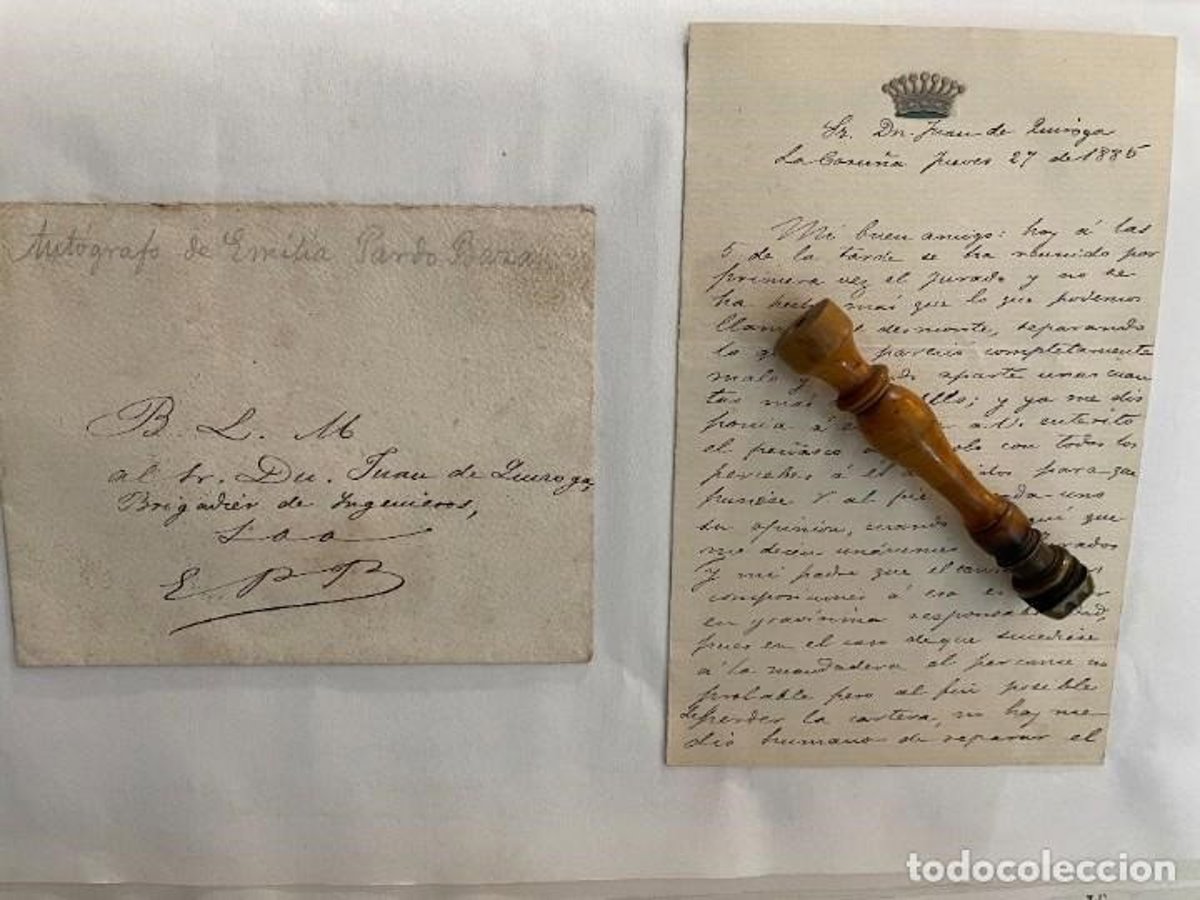 Autógrafo de Emilia Pardo Bazan
B. L. M
al Sr. Dn. Juan de Quiroga,
Brigadier de Ingenieros,
E P B
Sr. Dn. Juan de Quiroga
La Coruña Jueves 27 de 1885
Mi buen amigo: hoy á las
5 de la tarde se ha reunido por
primera vez el Jurado y no se
ha hecho mas que lo que podemos
llamar desmonte, separando
lo pareció completamente
malo y aparte unas cuan
tas mas y ya me dis
ponia á á V. enterito
el peñasco con todos los
percebes á él para que
pusiese V. al pié cada uno
su opinión, cuando aquí que
me dicen unánimes
y mi padre que el
composiciones á esa
en gravísima responsabilidad,
pues en el caso de que sucediese
á la mandadera el percance no
probable pero al fin posible
de perder la cartera, no hay me-
dio humano de reparar el
todocoleccion